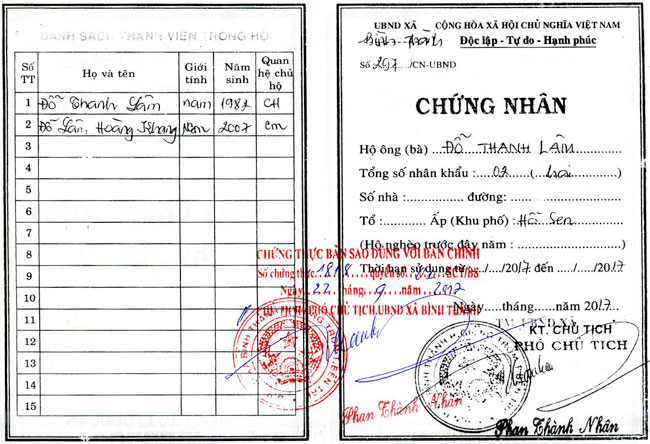 DANH SÁCH THÀNH VIÊN TRONG HỘ
Số TT Họ và tên Giới tính Năm sinh Quan hệ chủ hộ
1 Đỗ Thanh Lâm nam 1987 CH
2 Đỗ Lâm Hoàng Khang Nam 2007 em
3
4
5
6
7
8
9
10
11
12
13
14
15
UBND XÃ CỘNG HÒA XÃ HỘI CHỦ NGHĨA VIỆT NAM
Bình Thành Độc lập - Tự do - Hạnh phúc
Số 297/CN-UBND
CHỨNG NHẬN
Hộ ông (bà) ĐỖ THANH LÂM
Tổng số nhân khẩu : 02 (hai)
Số nhà : đường:
Tổ : Ấp (Khu phố) : Hố Sen
(Hộ nghèo trước đây năm : )
Thời hạn sử dụng từ ..../..../2017 đến ..../..../2017
Ngày.....tháng......năm 2017
KT. CHỦ TỊCH
PHÓ CHỦ TỊCH
Phan Thành Nhân
CHỨNG THỰC BẢN SAO ĐÚNG VỚI BẢN CHÍNH
Số chứng thực 1818 quyển số SCT/BS
Ngày 22 tháng 9 năm
PHÓ CHỦ TỊCH UBND XÃ BÌNH THÀNH
Phan Thành Nhân